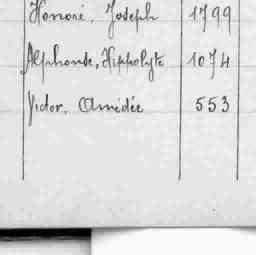 Honoré, Joseph 1799
Alphonse, Hippolyte 1074
Victor, Amédée 553